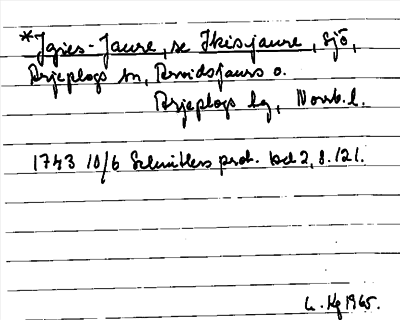 *Jgies-Jaure, se Ikisjaure, Sjö,
Arjeplogs sn, Arvidsjaurs o.
Arjeplogs lg, Norrb. l.
1743 10/6 Schnitlers prot. bd 2, s. 121.
L. Hg 1965.